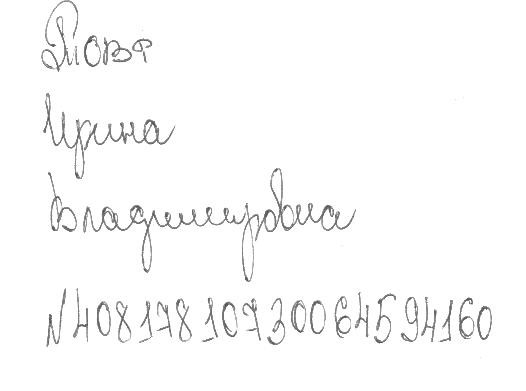 Ирина
Владимировна
N40817810730064594160